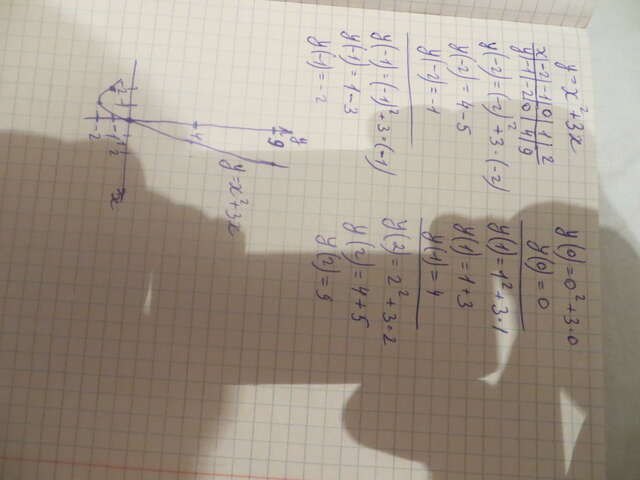 y=x²+3x
x|-2|-1|0|1|2
y|-1|-2|0|4|9
y(-2)=(-2)²+3·(-2)
y(-2)=4-5
y(-2)=-1
y(-1)=(-1)²+3·(-1)
y(-1)=1-3
y(-1)=-2
y(0)=0²+3·0
y(0)=0
y(1)=1²+3·1
y(1)=1+3
y(1)=4
y(2)=2²+3·2
y(2)=4+5
y(2)=9
y
9
y=x²+3x
4
-2 -1 1 2 x
-1
-2